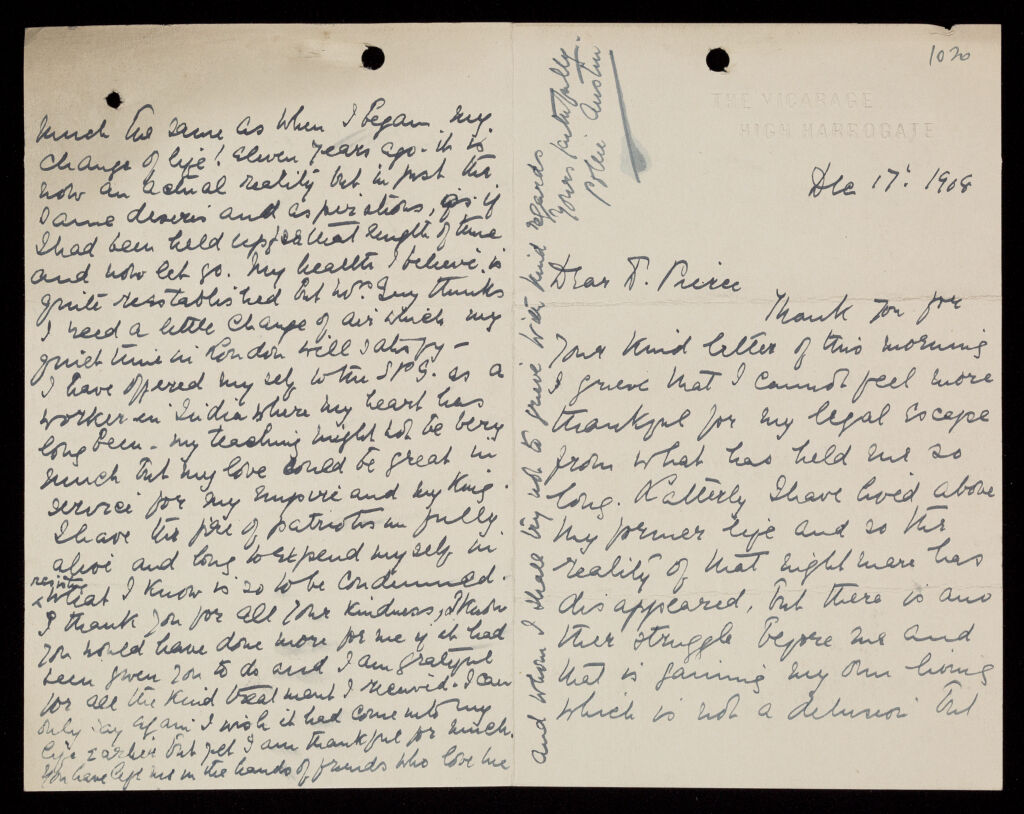 1020
THE VICARAGE
HIGH HARROGATE
Dec 17. 1908
Dear D. Pierce
Thank you for
your kind letter of this morning
I grieve that I cannot feel more
thankful for my legal escape
from what has held me so
long. Latterly I have lived above
my former life and so the
reality of that nightmare has
disappeared, but there is ano
ther struggle before me and
that is gaining my own living
which is not a delusion but
much the same as when I began my
change of life! Eleven years ago. it is
now an actual reality but in just the
same desires and aspirations, as if
I had been held up for that length of time
and now let go. My health I believe, is
quite reestablished but Mrs. Guy thinks
I need a little change of air which my
quiet time in London will satisfy –
I have offered myself to the S.P.G. as a
worker in India where my heart has
long been – my teaching might not be very
much but my love could be great in
service for my Empire and my King.
I have the fire of patriotism fully
alive and long to expend myself in
resisting
what I know is so to be condemned.
I thank you for all your kindness, I know
you would have done more for me if it had
been given you to do and I am grateful
for all the kind treatment I received. I can
only say again I wish it had come into my
life earlier but yet I am thankful for much.
You have left me in the hands of friends who love me
and whom I shall try not to grieve with kind regards
Yours faithfully.
Austin